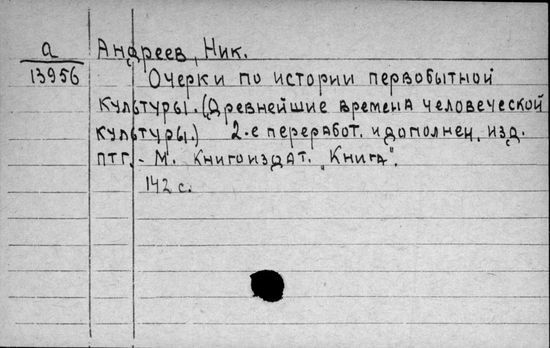 а Андреев, Ник.
13956 Очерки по истории первобытной
культуры. (Древнейшие времена человеческой
культуры.) 2-е переработ. и дополнен. изд.
ПТГ. - М. Книгоиздат. "Книга".
142 с.